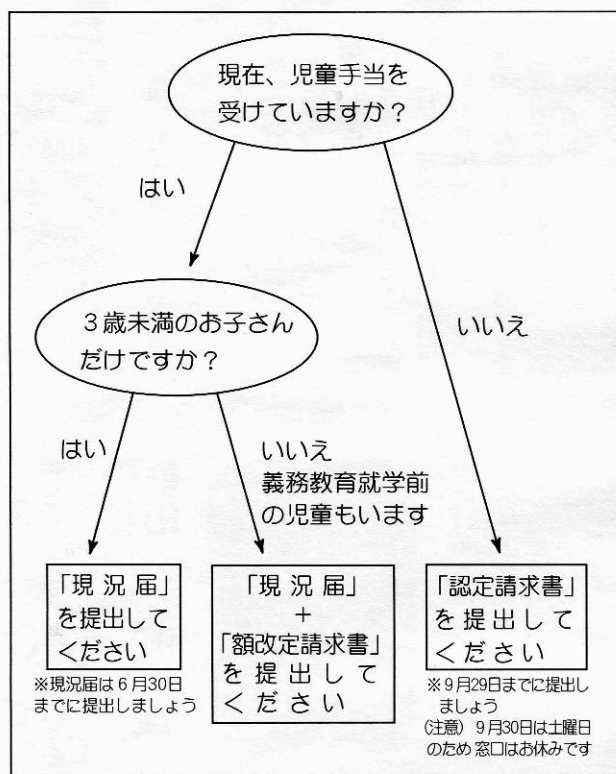 現在、児童手当を
受けていますか？
はい
いいえ
３歳未満のお子さん
だけですか？
はい
いいえ
義務教育就学前
の児童もいます
「現況届」
を提出して
ください
※現況届は６月30日
までに提出しましょう
「現況届」
+
「額改定請求書」
を提出して
ください
「認定請求書」
を提出して
ください
※９月29日までに提出し
ましょう
（注意）９月30日は土曜日
のため 窓口はお休みです